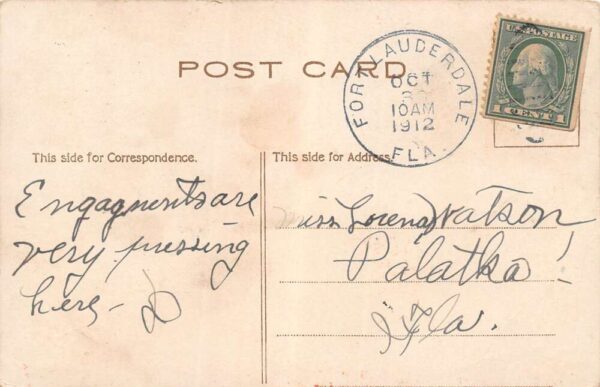 POST CARD
FORT LAUDERDALE
OCT
10AM
1912
FLA.
U.S. POSTAGE
1 CENT 1
This side for Correspondence.
Engagments are
very pressing
here -
This side for Address.
Miss Lorena Watson
Palatka!
Fla.